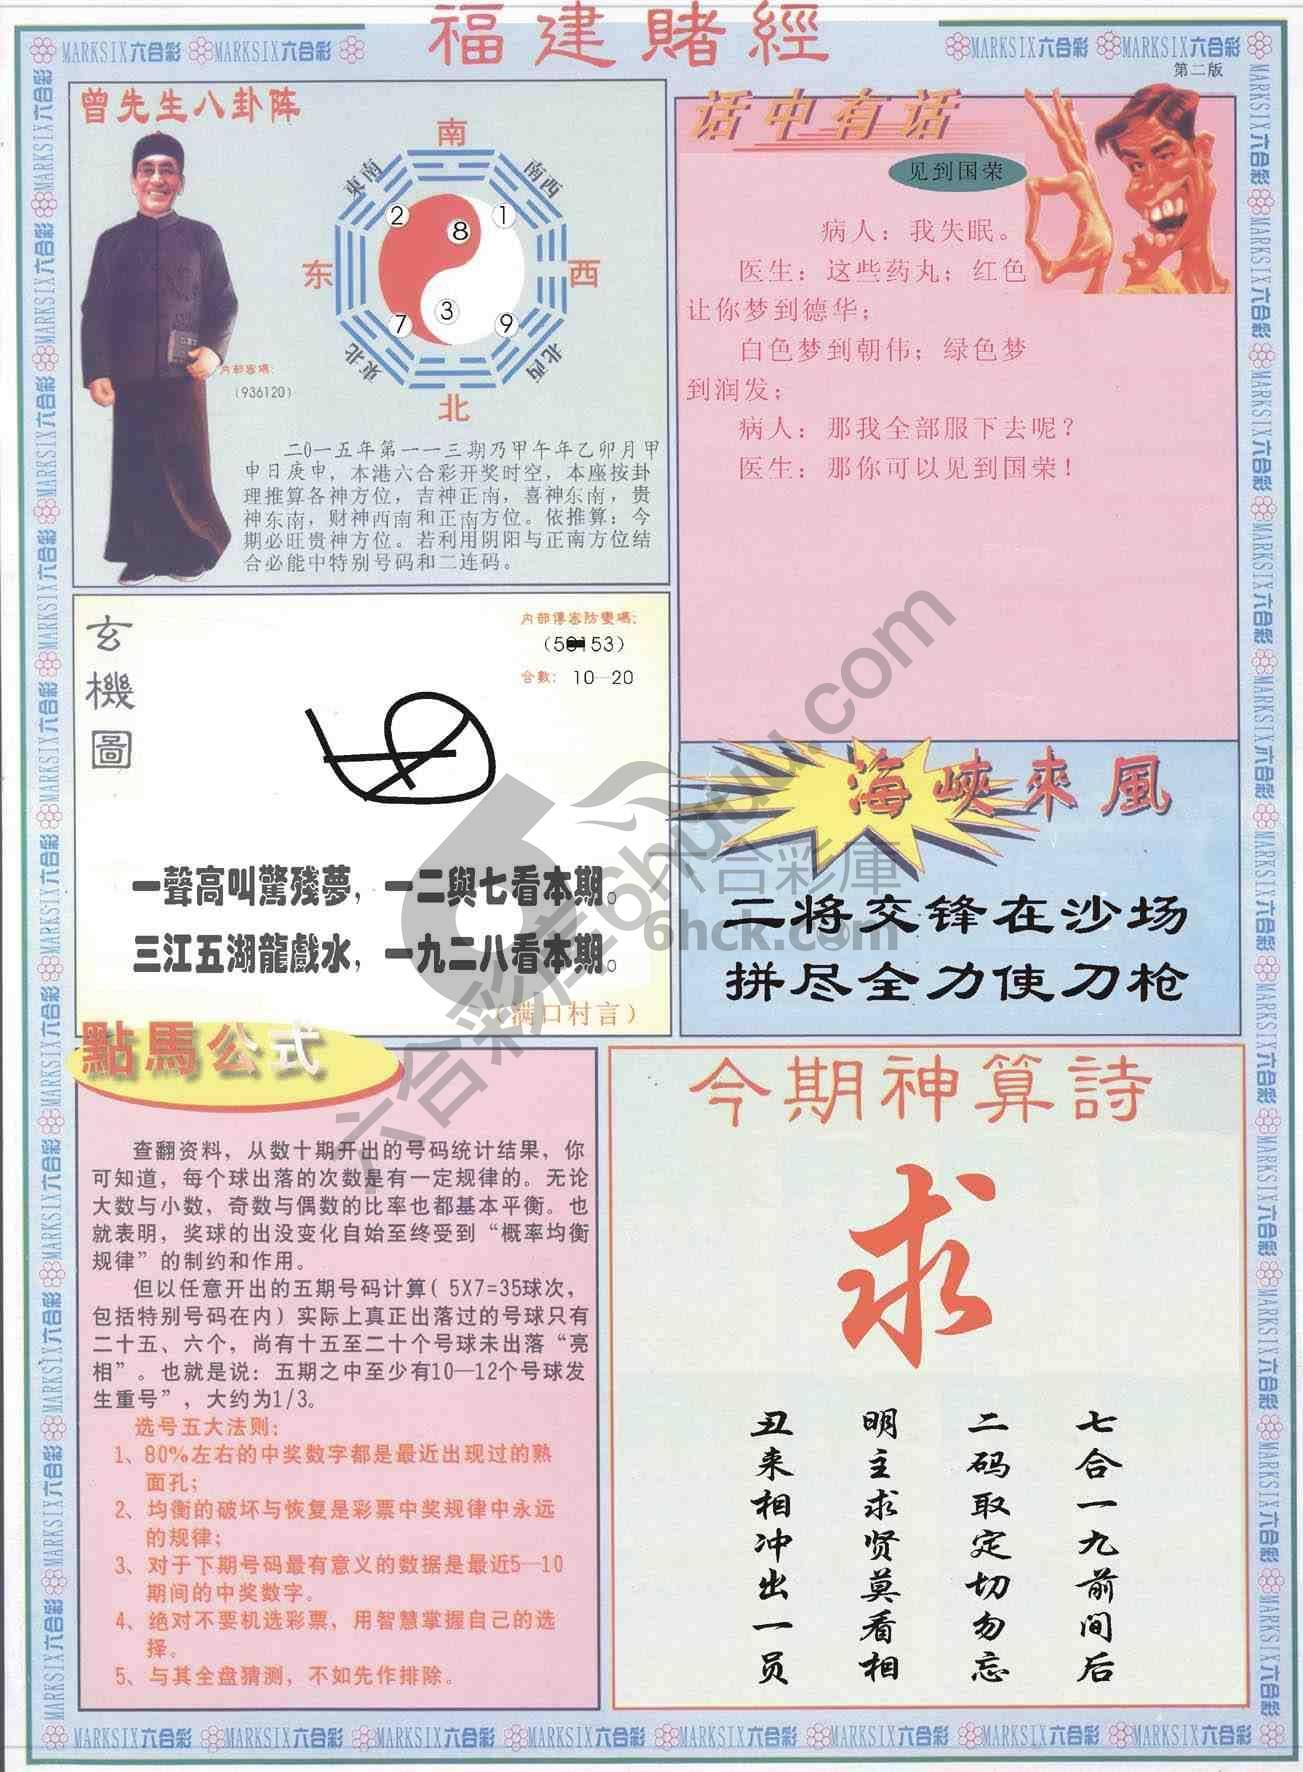 福建賭經
MARKSIX六合彩 MARKSIX六合彩
MARKSIX六合彩 MARKSIX六合彩
第二版
曾先生八卦阵
南
東南
南西
2
8
1
东
西
7
3
9
東北
北西
北
内部密碼:
(936120)
二0一五年第一一三期乃甲午年乙卯月甲
申日庚申，本港六合彩开奖时空，本座按卦
理推算各神方位，吉神正南，喜神东南，贵
神东南，财神西南和正南方位。依推算：今
期必旺贵神方位。若利用阴阳与正南方位结
合必能中特别号码和二连码。
话中有话
见到国荣
病人：我失眠。
医生：这些药丸；红色
让你梦到德华；
白色梦到朝伟；绿色梦
到润发；
病人：那我全部服下去呢？
医生：那你可以见到国荣！
玄機圖
内部傳密防變碼:
合數: 10—20
一聲高叫驚殘夢，一二與七看本期。
三江五湖龍戲水，一九二八看本期。
（满口村言）
海峽來風
二将交锋在沙场
拼尽全力使刀枪
六合彩庫
6hck.com
點馬公式
查翻资料，从数十期开出的号码统计结果，你
可知道，每个球出落的次数是有一定规律的。无论
大数与小数，奇数与偶数的比率也都基本平衡。也
就表明，奖球的出没变化自始至终受到“概率均衡
规律”的制约和作用。
但以任意开出的五期号码计算( 5X7=35球次，
包括特别号码在内) 实际上真正出落过的号球只有
二十五、六个，尚有十五至二十个号球未出落“亮
相”。也就是说：五期之中至少有10—12个号球发
生重号”，大约为1/3。
选号五大法则:
1、80%左右的中奖数字都是最近出现过的熟
面孔；
2、均衡的破坏与恢复是彩票中奖规律中永远
的规律；
3、对于下期号码最有意义的数据是最近5—10
期间的中奖数字。
4、绝对不要机选彩票，用智慧掌握自己的选
择。
5、与其全盘猜测，不如先作排除。
今期神算詩
求
七合一九前间后
二码取定切勿忘
明主求贤莫看相
丑来相冲出一员
MARKSIX六合彩 MARKSIX六合彩 MARKSIX六合彩 MARKSIX六合彩 MARKSIX六合彩 MARKSIX六合彩 MARKSIX六合彩 MARKSIX六合彩